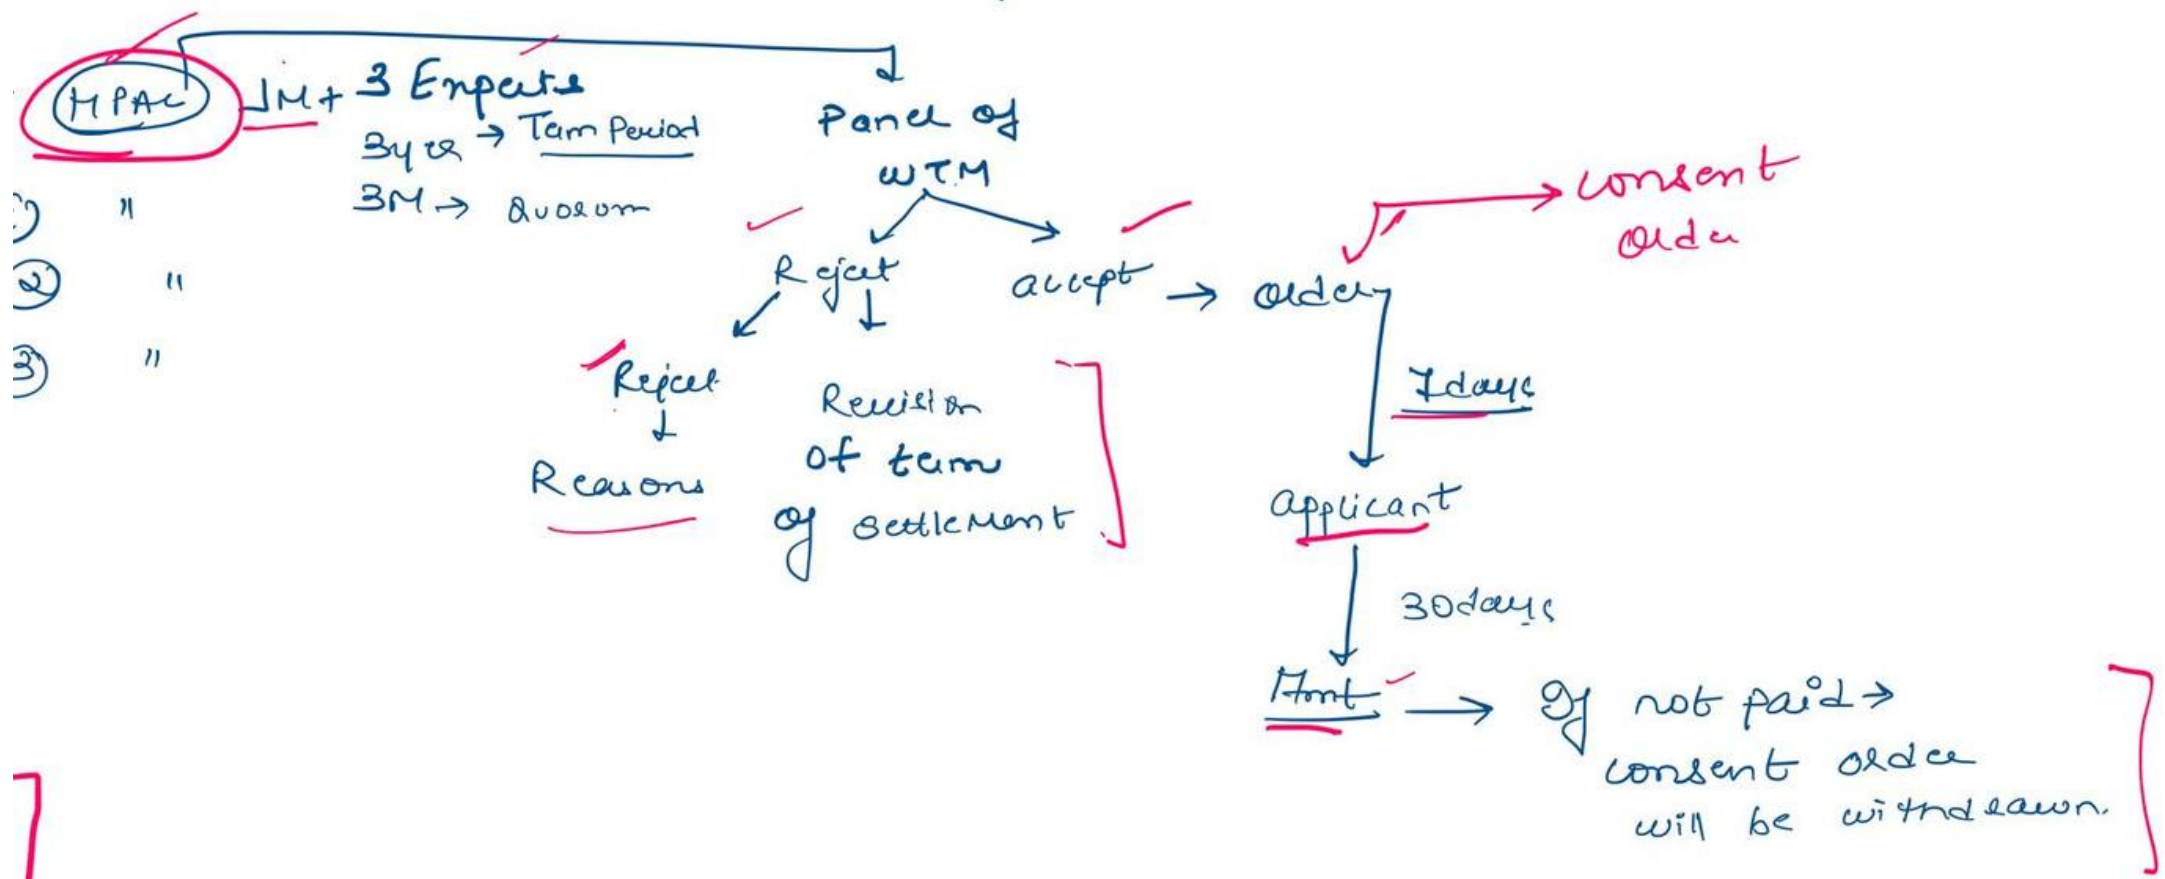 HPAC JM + 3 Experts
3yrs → Term Period
3M → Quorum
1) "
2 "
3) "
Panel of
WTM
Reject
accept → order
consent
order
Reject
Reasons
Revision
of term
of settlement
7days
applicant
30days
Amt → If not paid →
consent order
will be withdrawn.